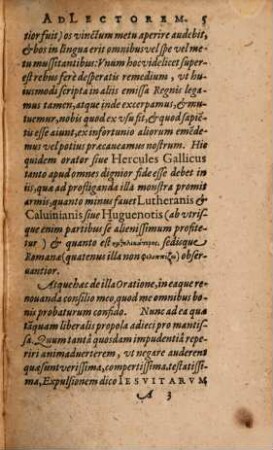 AD LECTOREM. 5
tior fuit) os vinctum metu aperire audebit,
& bos in lingua erit omnibus vel spe vel me-
tu mussitantibus: Vnum hoc videlicet super-
est rebus ferè desperatis remedium, vt hu-
iusmodi scripta in aliis emissa Regnis lega-
mus tamen, atque inde excerpamus, & mu-
tuemur, nobis quod ex vsu fit, & quod sapiē-
tis esse aiunt, ex infortunio aliorum emēde-
mus vel potius præcaueamus nostrum. Hic
quidem orator siue Hercules Gallicus
tanto apud omnes dignior fide esse debet in
iis, quæ ad profliganda illa monstra promit
armis, quanto minus fauet Lutheranis &
Caluinianis siue Huguenotis (ab vtris-
que enim partibus se alienissimum profite-
tur) & quanto est sedisque
Romanæ (quatenus illa non obser-
uantior.
Atque hæc de illa Oratione, in eaque re-
nouanda consilio meo, quod me omnibus bo-
nis probaturum confido. Nunc ad ea quæ
tāquam liberalis propola adieci pro mantis-
sa. Quum tantā quosdam impudentiā repe-
riri animaduerterem, vt negare auderent
quæ sunt verissima, compertissima, testatissi-
ma, Expulsionem dico IESVITARVM
A 3